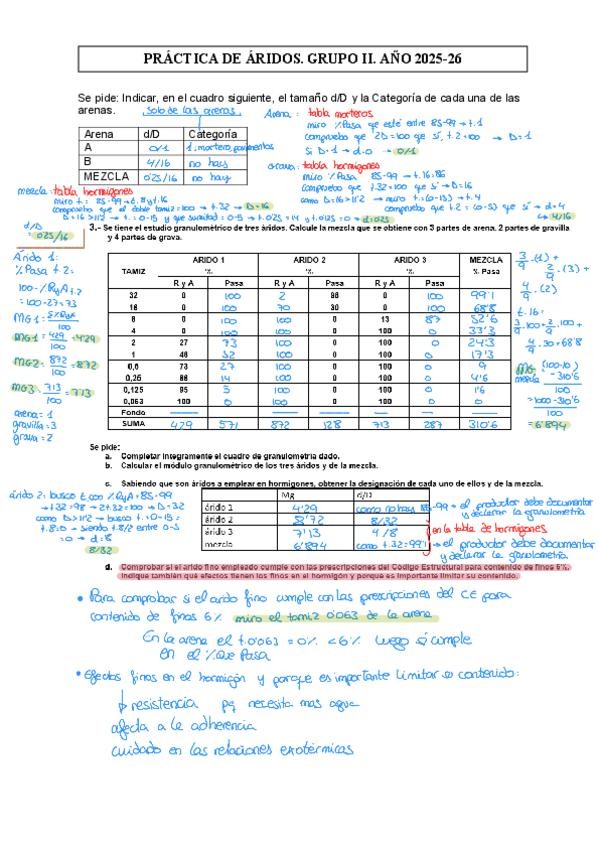 PRÁCTICA DE ÁRIDOS. GRUPO II. AÑO 2025-26
Se pide: Indicar, en el cuadro siguiente, el tamaño d/D y la Categoría de cada una de las
arenas. solo de las arenas
Arena d/D Categoría
A 0/1 1: mortero, pavimentos
B 4/16 no hay
MEZCLA 0'25/16 no hay
Arena: tabla morteros
miro % Pasa que esté entre 85-99 → t.1
compruebo que 2D=100 que sí, t.2=100 → D=1
si D=1 → d=0 → 0/1
Grava: tabla hormigones
miro % Pasa 85-99 → t.16=86
compruebo que t.32=100 que sí → D=16
como D=16>11'2 → miro t.(0-15) → t.4
compruebo que t.2=(0-5) que sí → d=4
→ 4/16
mezcla: tabla hormigones
miro t.: 85-99 → t.8 y t.16
compruebo que el doble tamiz=100 → t.32 → D=16
D=16>11'2 → t.: 0-15 y que su mitad: 0-5 → t.0'25=14 y t.0'125=0 → d=0'25
d/D
= 0'25/16
3.- Se tiene el estudio granulométrico de tres áridos. Calcule la mezcla que se obtiene con 3 partes de arena, 2 partes de gravilla
y 4 partes de grava.
TAMIZ ARIDO 1 %. ARIDO 2 %. ARIDO 3 %. MEZCLA % Pasa
R y A Pasa R y A Pasa R y A Pasa
32 0 100 2 98 0 100 99'1
16 0 100 70 30 0 100 68'8
8 0 100 100 0 13 87 52'6
4 0 100 100 0 100 0 33'3
2 27 73 100 0 100 0 24'3
1 48 52 100 0 100 0 17'3
0,5 73 27 100 0 100 0 9
0,25 86 14 100 0 100 0 4'6
0,125 95 5 100 0 100 0 1'6
0,063 100 0 100 0 100 0 0
Fondo
SUMA 429 571 872 128 713 287 310'6
Árido 1:
% Pasa t.2:
100-%RyA t.2
=100-27=73
MG1: Σ%RyA/100
MG1= 429/100 =4'29
MG2= 872/100 =8'72
MG3= 713/100 =7'13
arena=1
gravilla=3
grava=2
3/9·(1) +
2/9·(3) +
4/9·(2)
t.16:
3/9·100+2/9·100+
4/9·30=68'8
MG mezcla
(100·10)
-310'6
/100
=1000-310'6
/100
= 6'894
Se pide:
a. Completar íntegramente el cuadro de granulometría dado.
b. Calcular el módulo granulométrico de los tres áridos y de la mezcla.
c. Sabiendo que son áridos a emplear en hormigones, obtener la designación de cada uno de ellos y de la mezcla.
Mg d/D
árido 1 4'29 como no hay 85-99 → el productor debe documentar y declarar la granulometría
árido 2 8'72 8/32
árido 3 7'13 4/8
mezcla 6'894 como t.32=99'1 → el productor debe documentar y declarar la granulometría.
en la tabla de hormigones
árido 2: busco t. con %RyA=85-99
→ t.32=98 → 2t.32=100 → D=32
como D>11'2 → busco t.=0-15=
t.8=0 → siendo t.8/2 entre 0-5
=0 → d=8
8/32
d. Comprobar si el arido fino empleado cumple con las prescripciones del Codigo Estructural para contenido de finos 6%.
Indique también qué efectos tienen los finos en el hormigón y porque es importante limitar su contenido.
• Para comprobar si el arido fino cumple con las prescripciones del CE para
contenido de finos 6% miro el tamiz 0'063 de la arena
En la arena el t.0'063 = 0% < 6% luego sí cumple
en el % que pasa
• Efectos finos en el hormigón y porque es importante limitar su contenido:
↓ resistencia pq necesita mas agua
afecta a la adherencia
cuidado en las relaciones exotérmicas